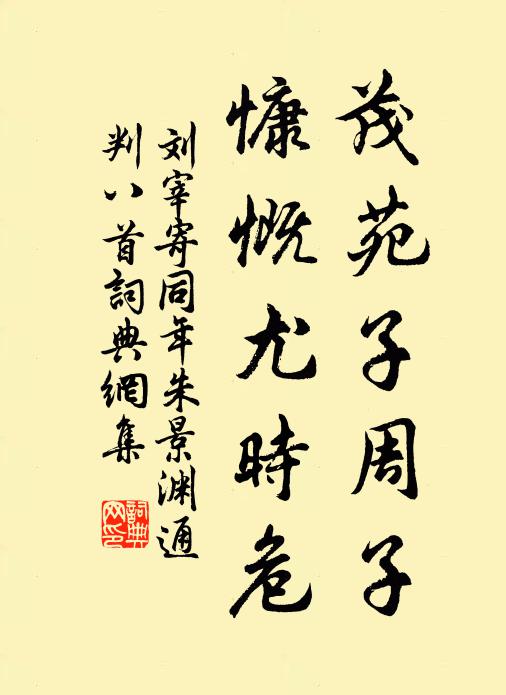 茂苑子周子
慷慨尤時危
刘宰寄同年朱景渊通
判八首詞典網集
詞典
网印